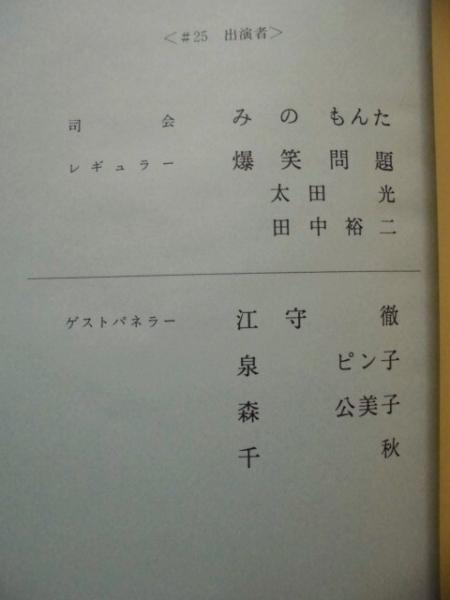 ＜＃25　出演者＞
司　会　みのもんた
レギュラー　爆笑問題
太田　光
田中裕二
ゲストパネラー　江守　徹
泉　ピン子
森　公美子
千　秋